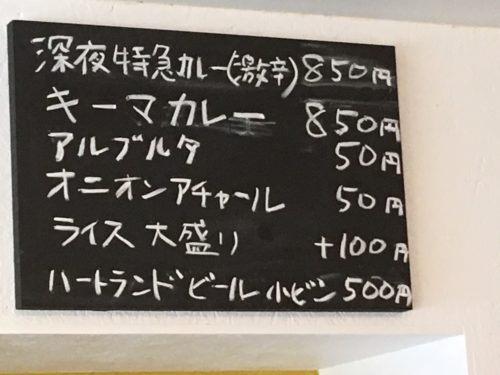 深夜特急カレー(激辛) 850円
キーマカレー 850円
アルブルタ 50円
オニオンアチャール 50円
ライス 大盛り +100円
ハートランドビール 小ビン 500円